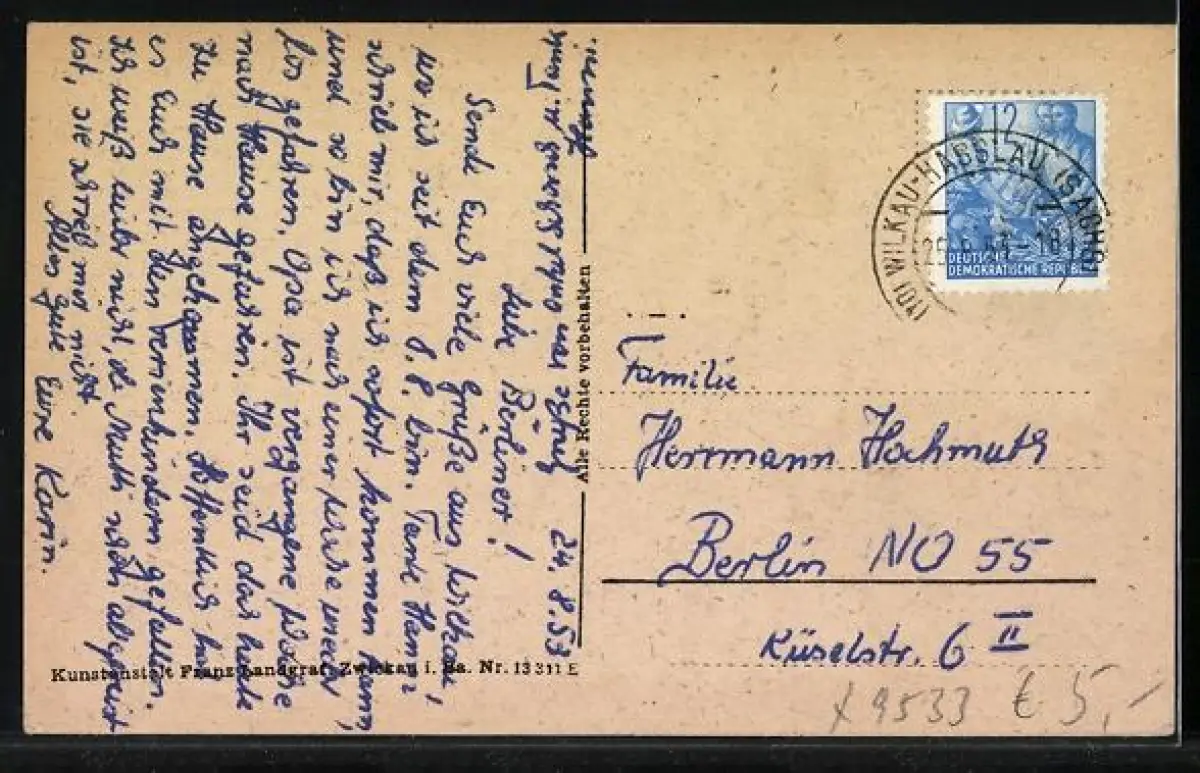 24. 8. 53
Liebe Berliner!
Sende Euch viele Grüße aus Wilkau,
wo ich seit dem 8. 8. bin. Tante Hanni
schrieb mir, daß ich sofort kommen kann,
und so bin ich nach einer Woche wieder
los gefahren. Opa ist vergangene Woche
nach Hause gefahren. Ihr seid doch heute
zu Hause angekommen. Hoffentlich hat
es Euch mit den Ferienkindern gefallen.
Ich weiß leider nicht, ob Mutti schon abgereist
ist, sie schrieb mir nicht.
Alles Gute Eure Karin.
Kunstanstalt Franz Landgraf, Zwickau i. Sa. Nr. 13311 E
Alle Rechte vorbehalten
12
DEUTSCHE
DEMOKRATISCHE REPUBLIK
(10) WILKAU-HASSLAU (SACHS)
25.8.53-18
Familie
Herrmann Hochmuth
Berlin NO 55
Küselstr. 6 II
x 9533 € 5,-